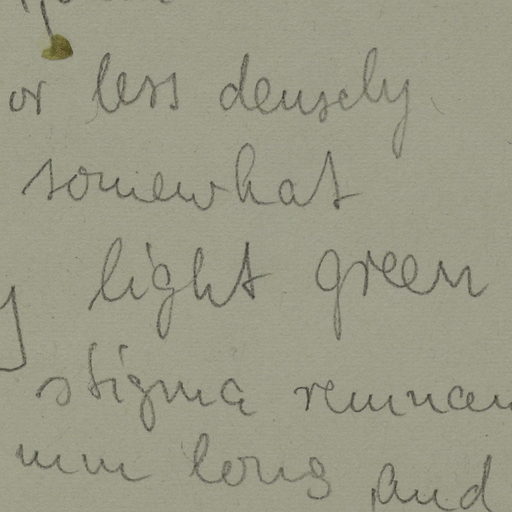 or less densely
somewhat
light green
stigma remnan
mm long and